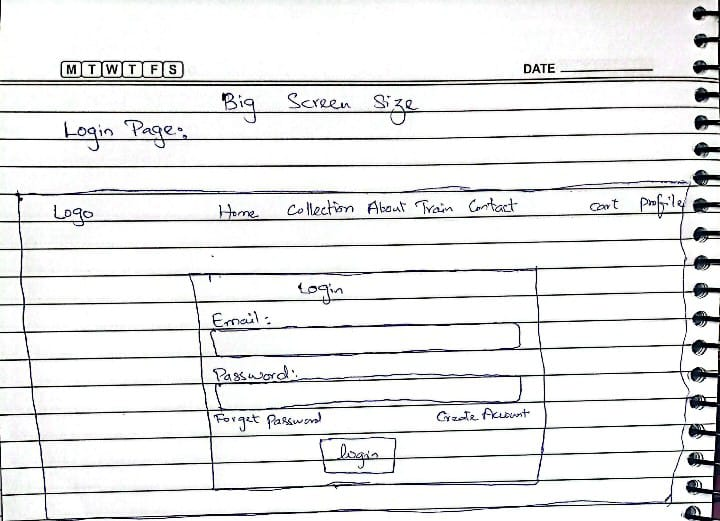 M T W T F S
DATE
Big Screen Size
Login Page:
Logo Home Collection About Train Contact cart profile
Login
Email:
Password:
Forget Password Create Account
login